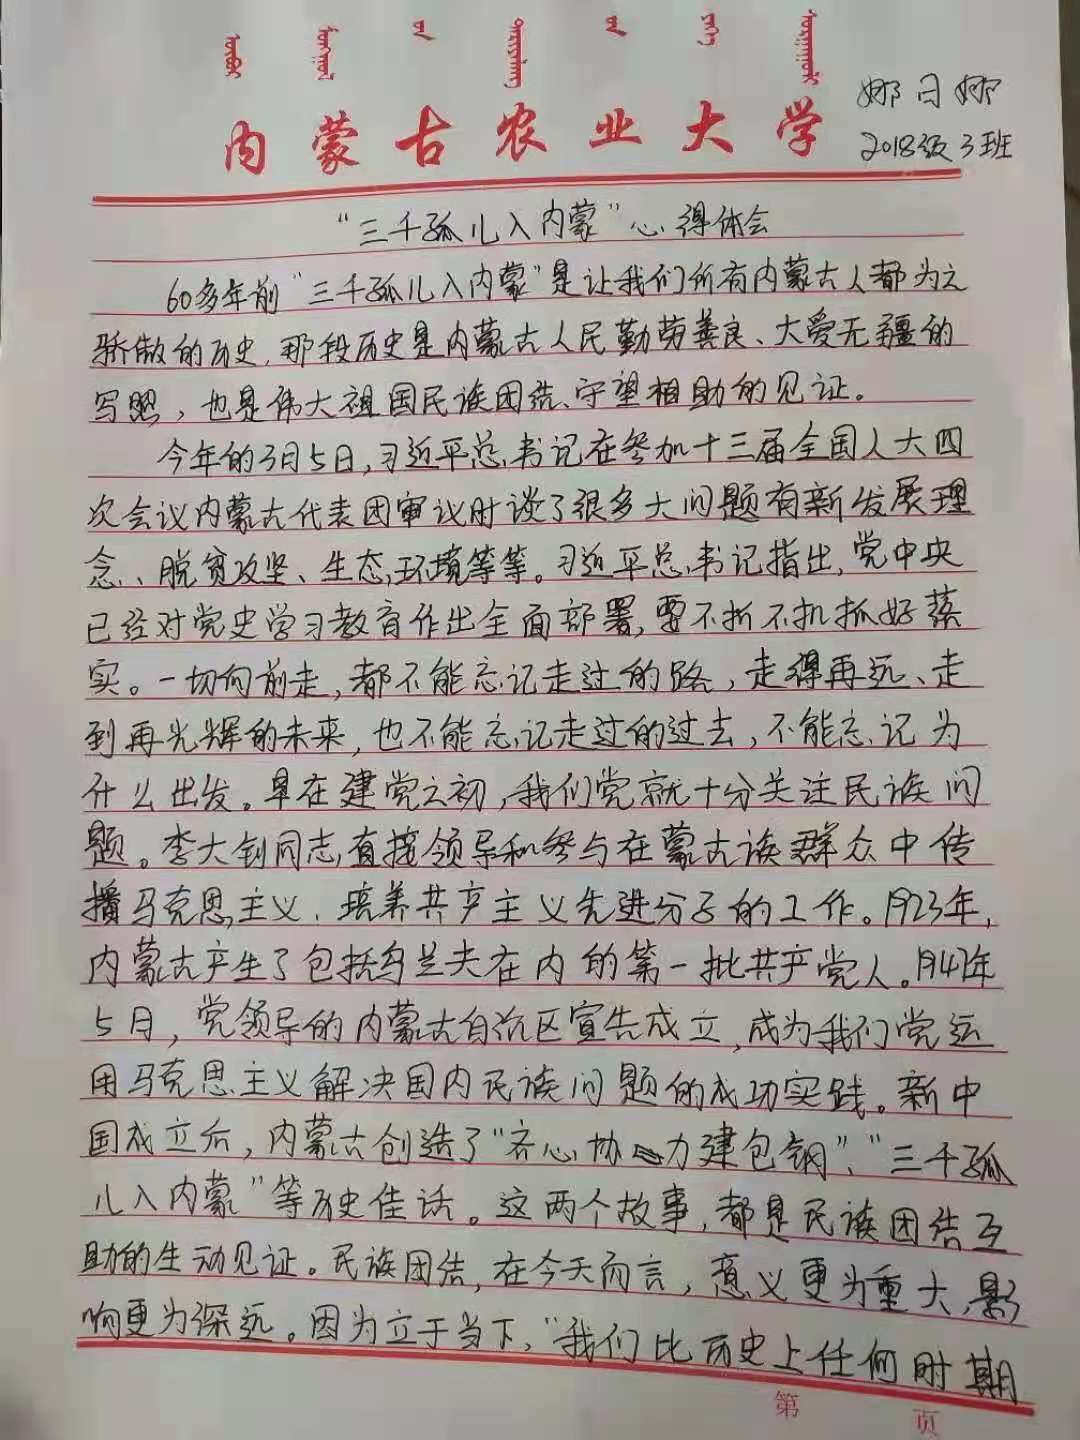 内蒙古农业大学
娜日娜
2018级3班
“三千孤儿入内蒙”心得体会
60多年前“三千孤儿入内蒙”是让我们所有内蒙古人都为之
骄傲的历史,那段历史是内蒙古人民勤劳善良、大爱无疆的
写照，也是伟大祖国民族团结、守望相助的见证。
今年的3月5日,习近平总书记在参加十三届全国人大四
次会议内蒙古代表团审议时谈了很多大问题有新发展理
念、脱贫攻坚、生态环境等等。习近平总书记指出,党中央
已经对党史学习教育作出全面部署,要不折不扣抓好落
实。一切向前走,都不能忘记走过的路,走得再远、走
到再光辉的未来,也不能忘记走过的过去,不能忘记为
什么出发。早在建党之初,我们党就十分关注民族问
题。李大钊同志直接领导和参与在蒙古族群众中传
播马克思主义、培养共产主义先进分子的工作。1923年,
内蒙古产生了包括乌兰夫在内的第一批共产党人。1947年
5月,党领导的内蒙古自治区宣告成立,成为我们党运
用马克思主义解决国内民族问题的成功实践。新中
国成立后,内蒙古创造了“齐心协力建包钢”、“三千孤
儿入内蒙”等历史佳话。这两个故事,都是民族团结互
助的生动见证。民族团结,在今天而言,意义更为重大,影
响更为深远。因为立于当下,“我们比历史上任何时期
第 页